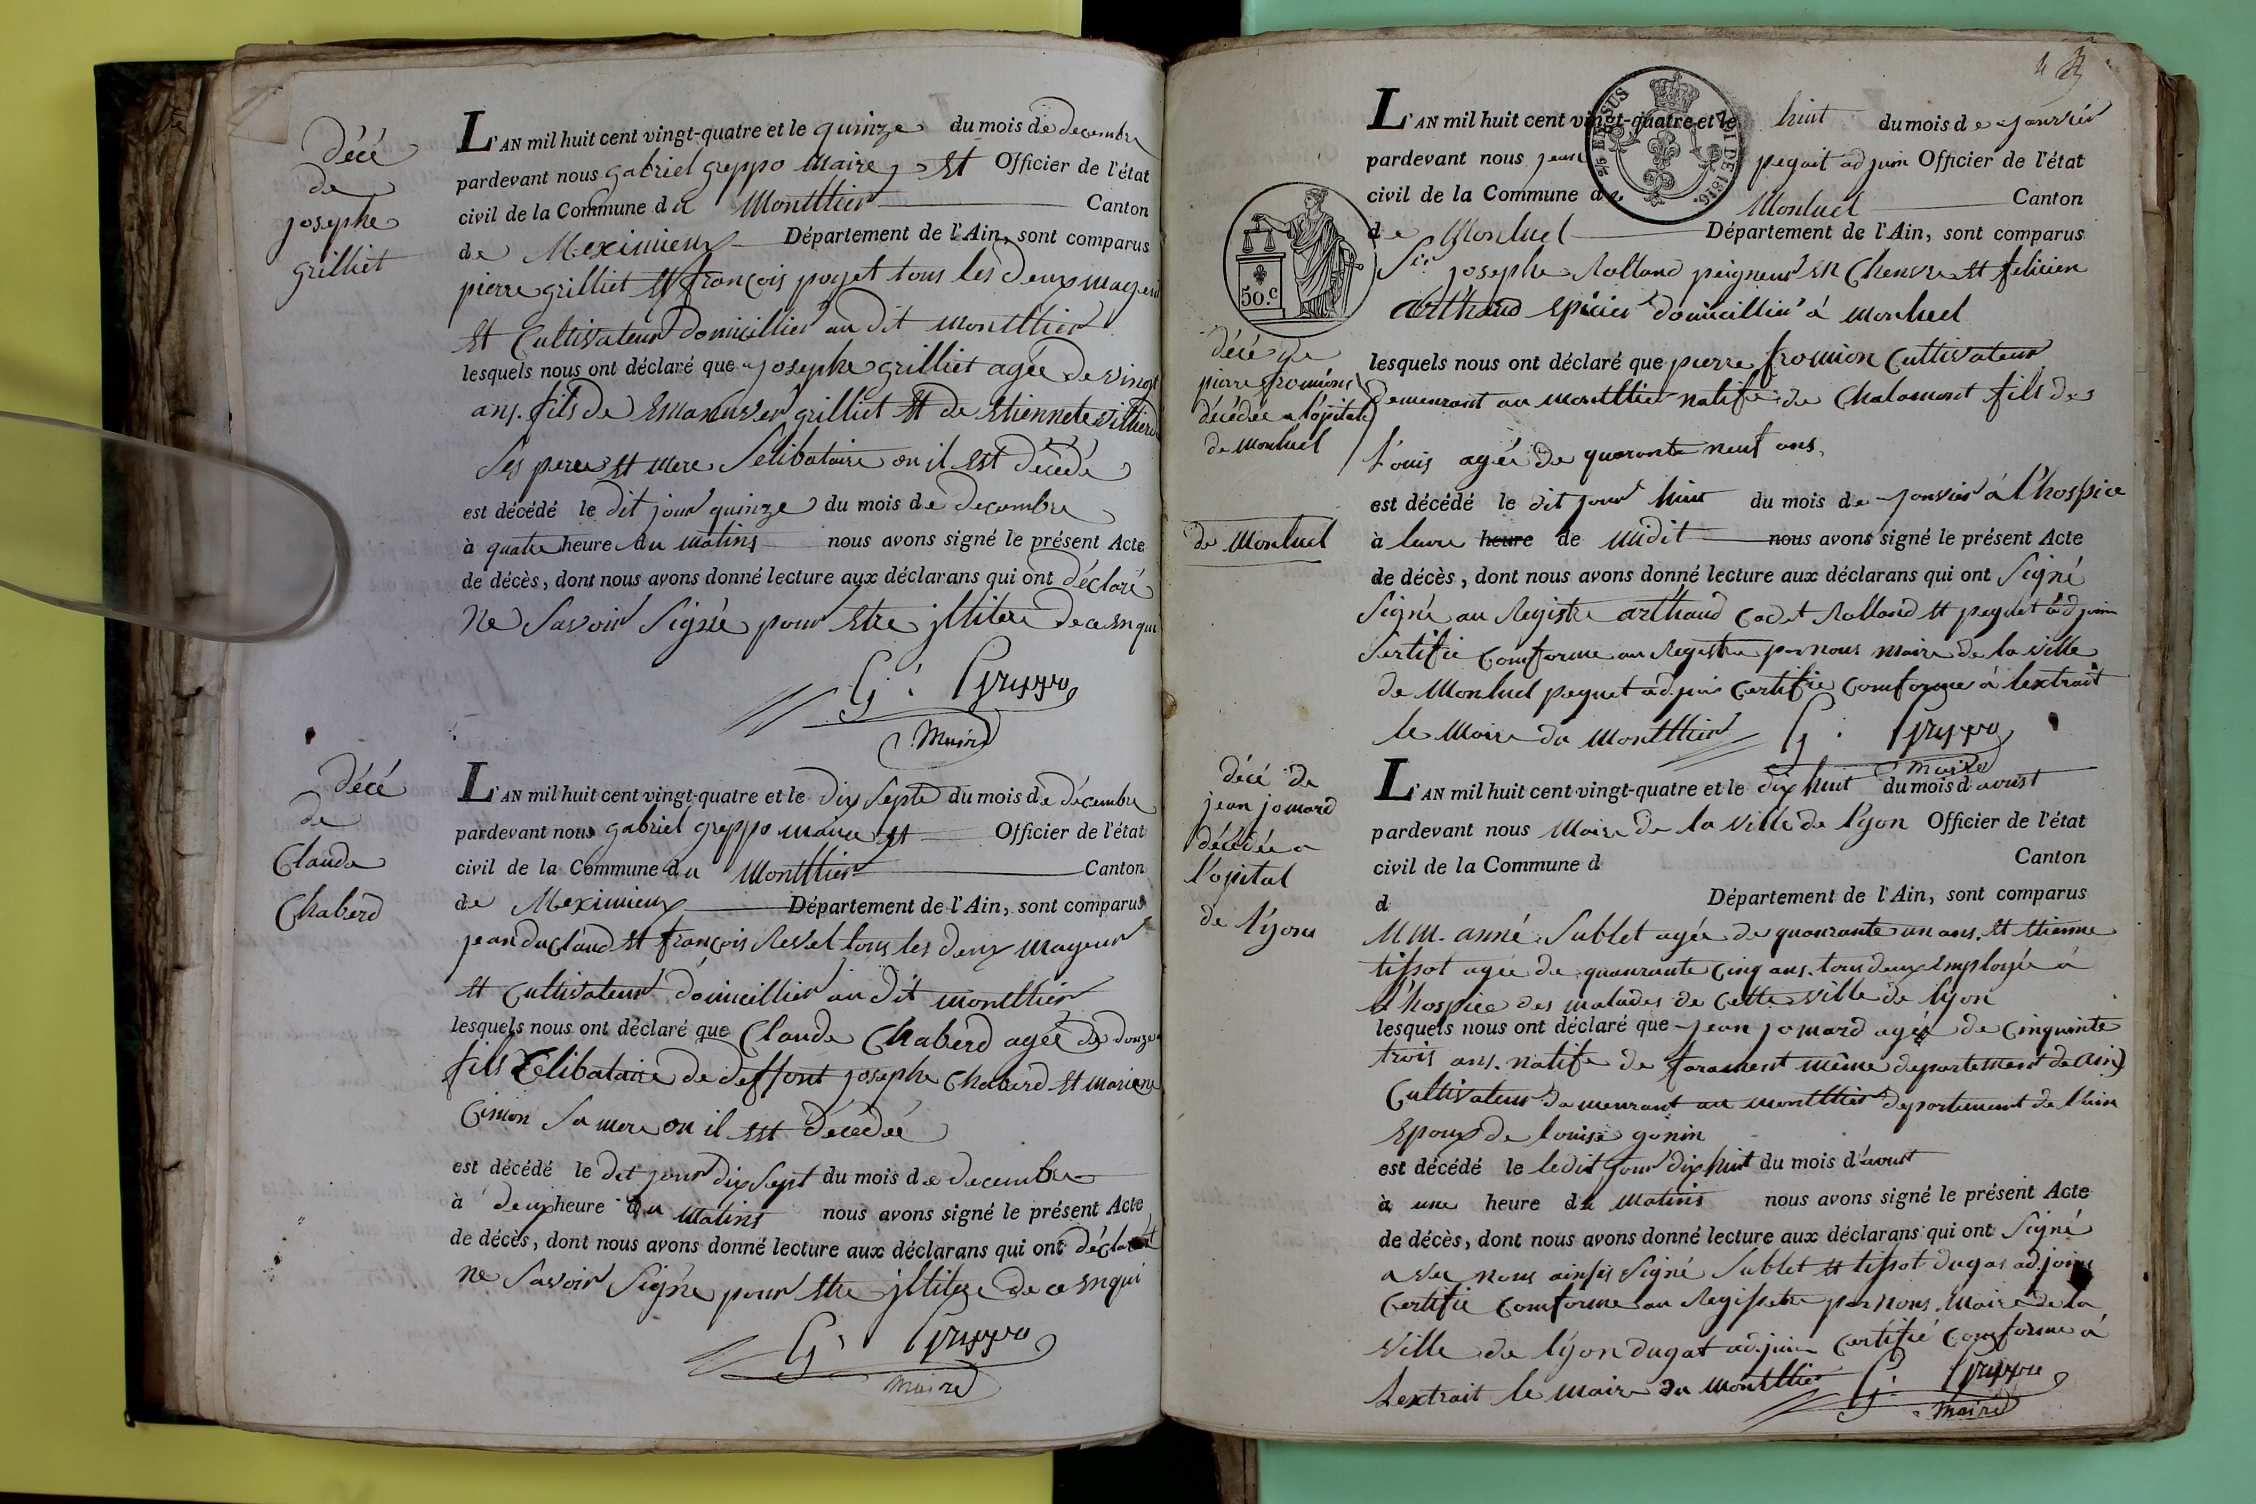 décé
de
josephe
grilliet
L'AN mil huit cent vingt-quatre et le quinze du mois de decembre
pardevant nous gabriel greppo maire et Officier de l'état
civil de la Commune du Montthier Canton
de Meximieux Département de l'Ain, sont comparus
pierre grilliet et françois poget tous les deux mageur
et Cultivateur domicillier au dit montthier
lesquels nous ont déclaré que josephe grilliet agée de vingt
ans. fils de grilliet et de Etiennete
Ses pere et mere Sélibataire ou il est décédé
est décédé le dit jour quinze du mois de decembre
à quatre heure du matins nous avons signé le présent Acte
de décès, dont nous avons donné lecture aux déclarans qui ont déclaré
ne Savoir Signée pour Etre jlliterе de ce enqui
G. Greppo
Maire
décé
de
Claude
Chaberd
L'AN mil huit cent vingt-quatre et le dix Septe du mois de décembre
pardevant nous gabriel greppo maire et Officier de l'état
civil de la Commune du Montthier Canton
de Meximieux Département de l'Ain, sont comparus
jean duclaud et françois Revel tous les deux mageur
et Cultivateur domicillier au dit montthier
lesquels nous ont déclaré que Claude Chaberd agée de douze
fils Célibataire de deffont josephe Chaberd et mariene
Cimon Sa mere ou il est décédée
est décédé le dit jour dix Sept du mois de decembre
à deux heure du Matins nous avons signé le présent Acte
de décès, dont nous avons donné lecture aux déclarans qui ont déclarent
ne Savoir Signée pour Etre jllitere de ce enqui
G. Greppo
maire
4
L'AN mil huit cent vingt-quatre et le huit du mois de janvier
pardevant nous jean peguit adjoin Officier de l'état
civil de la Commune de Monluel Canton
de Monluel Département de l'Ain, sont comparus
Sr. josephe Rolland peigneur en Chenvre et felicien
arthaud Epicier domicillier à monluel
50.c
LOI DE 1816.
décé de
pierre fromion
décédée a l'opital
de monluel
lesquels nous ont déclaré que pierre fromion Cultivateur
demeurant au montthier natife de Chalamont fils de
Louis agée de quarante neuf ans.
est décédé le dit jour huit du mois de janvier à l'hospice
de Monluel
à heure de midit nous avons signé le présent Acte
de décès, dont nous avons donné lecture aux déclarans qui ont Signé
Signé au Registre arthaud Cadet Rolland et peguet adjoin
Sertifie Comforme au Registre par nous maire de la ville
de Monluel peguet adjoin Certifie Comforme à lextrait
le Maire du Montthier G. Greppo
Maire
décé de
jean jomard
décédée a
l'opital
de lyon
L'AN mil huit cent vingt-quatre et le dix huit du mois d'aoust
pardevant nous Maire de la ville de lyon Officier de l'état
civil de la Commune d Canton
d Département de l'Ain, sont comparus
MM. anné Sublet agée de quaurante un ans. et Etienne
tissot agée de quaurante Cinq ans. tous deux Employée à
l'hospice des malades de Cette ville de lyon
lesquels nous ont déclaré que jean jomard agée de Cinquinte
trois ans. natife de farament même departement de ain
Cultivateur demeurant au montthier departement de l'ain
Epoux de louise gonin
est décédé le ledit jour dix huit du mois d'aoust
à une heure du Matins nous avons signé le présent Acte
de décès, dont nous avons donné lecture aux déclarans qui ont Signé
avec nous ainsis Signé Sublet et tissot dugas adjoins
Certifie Comforme au Registre par nous Maire de la
ville de lyon dugat adjoin Certifié Comforme à
Lextrait le maire du Montthier G. Greppo
Maire